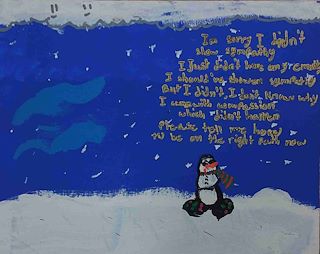 I'm sorry I didn't
show sympathy
I just didn't have any empathy
I should've shown sympathy
But I didn't, I don't know why
I was with compassion
which didn't happen
Please tell me how
to be on the right path now